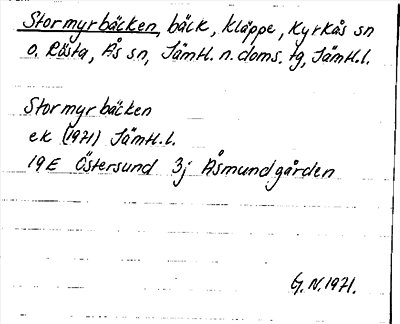 Stormyrbäcken, bäck, Kläppe, Kyrkås sn
o. Rösta, Ås sn, Jämtl. n. doms. tg, Jämtl. l.
Stormyrbäcken
ek (1971) Jämtl. l.
19E Östersund 3j Åsmundgården
G. N. 1971.